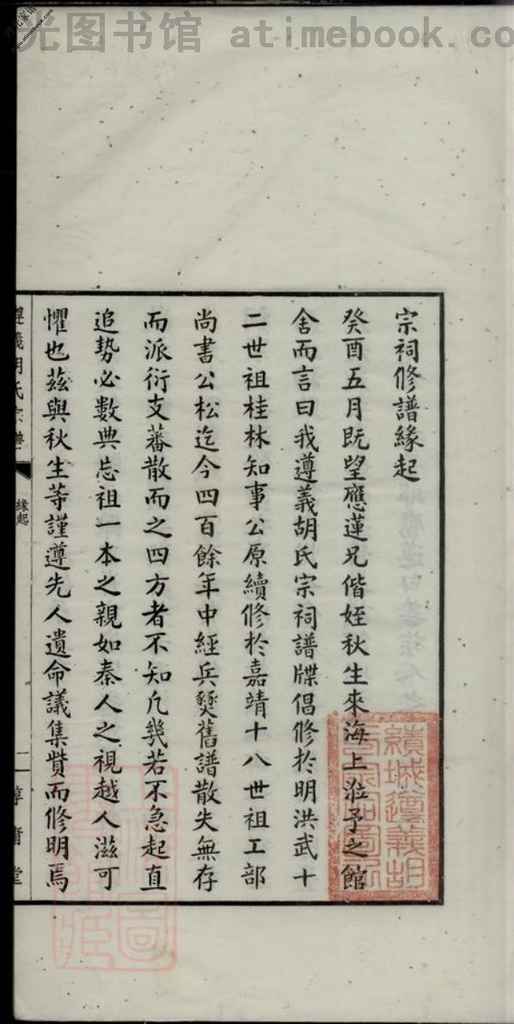 光图书馆 atimebook.co
宗祠修譜緣起
癸酉五月既望應蓮兄偕姪秋生來海上涖予之館
舍而言曰我遵義胡氏宗祠譜牒倡修於明洪武十
二世祖桂林知事公原續修於嘉靖十八世祖工部
尚書公松迄今四百餘年中經兵燹舊譜散失無存
而派衍支蕃散而之四方者不知凡幾若不急起直
追勢必數典忘祖一本之親如秦人之視越人滋可
懼也茲與秋生等謹遵先人遺命議集貲而修明焉
遵義胡氏宗譜
緣起
一
績城遵義胡